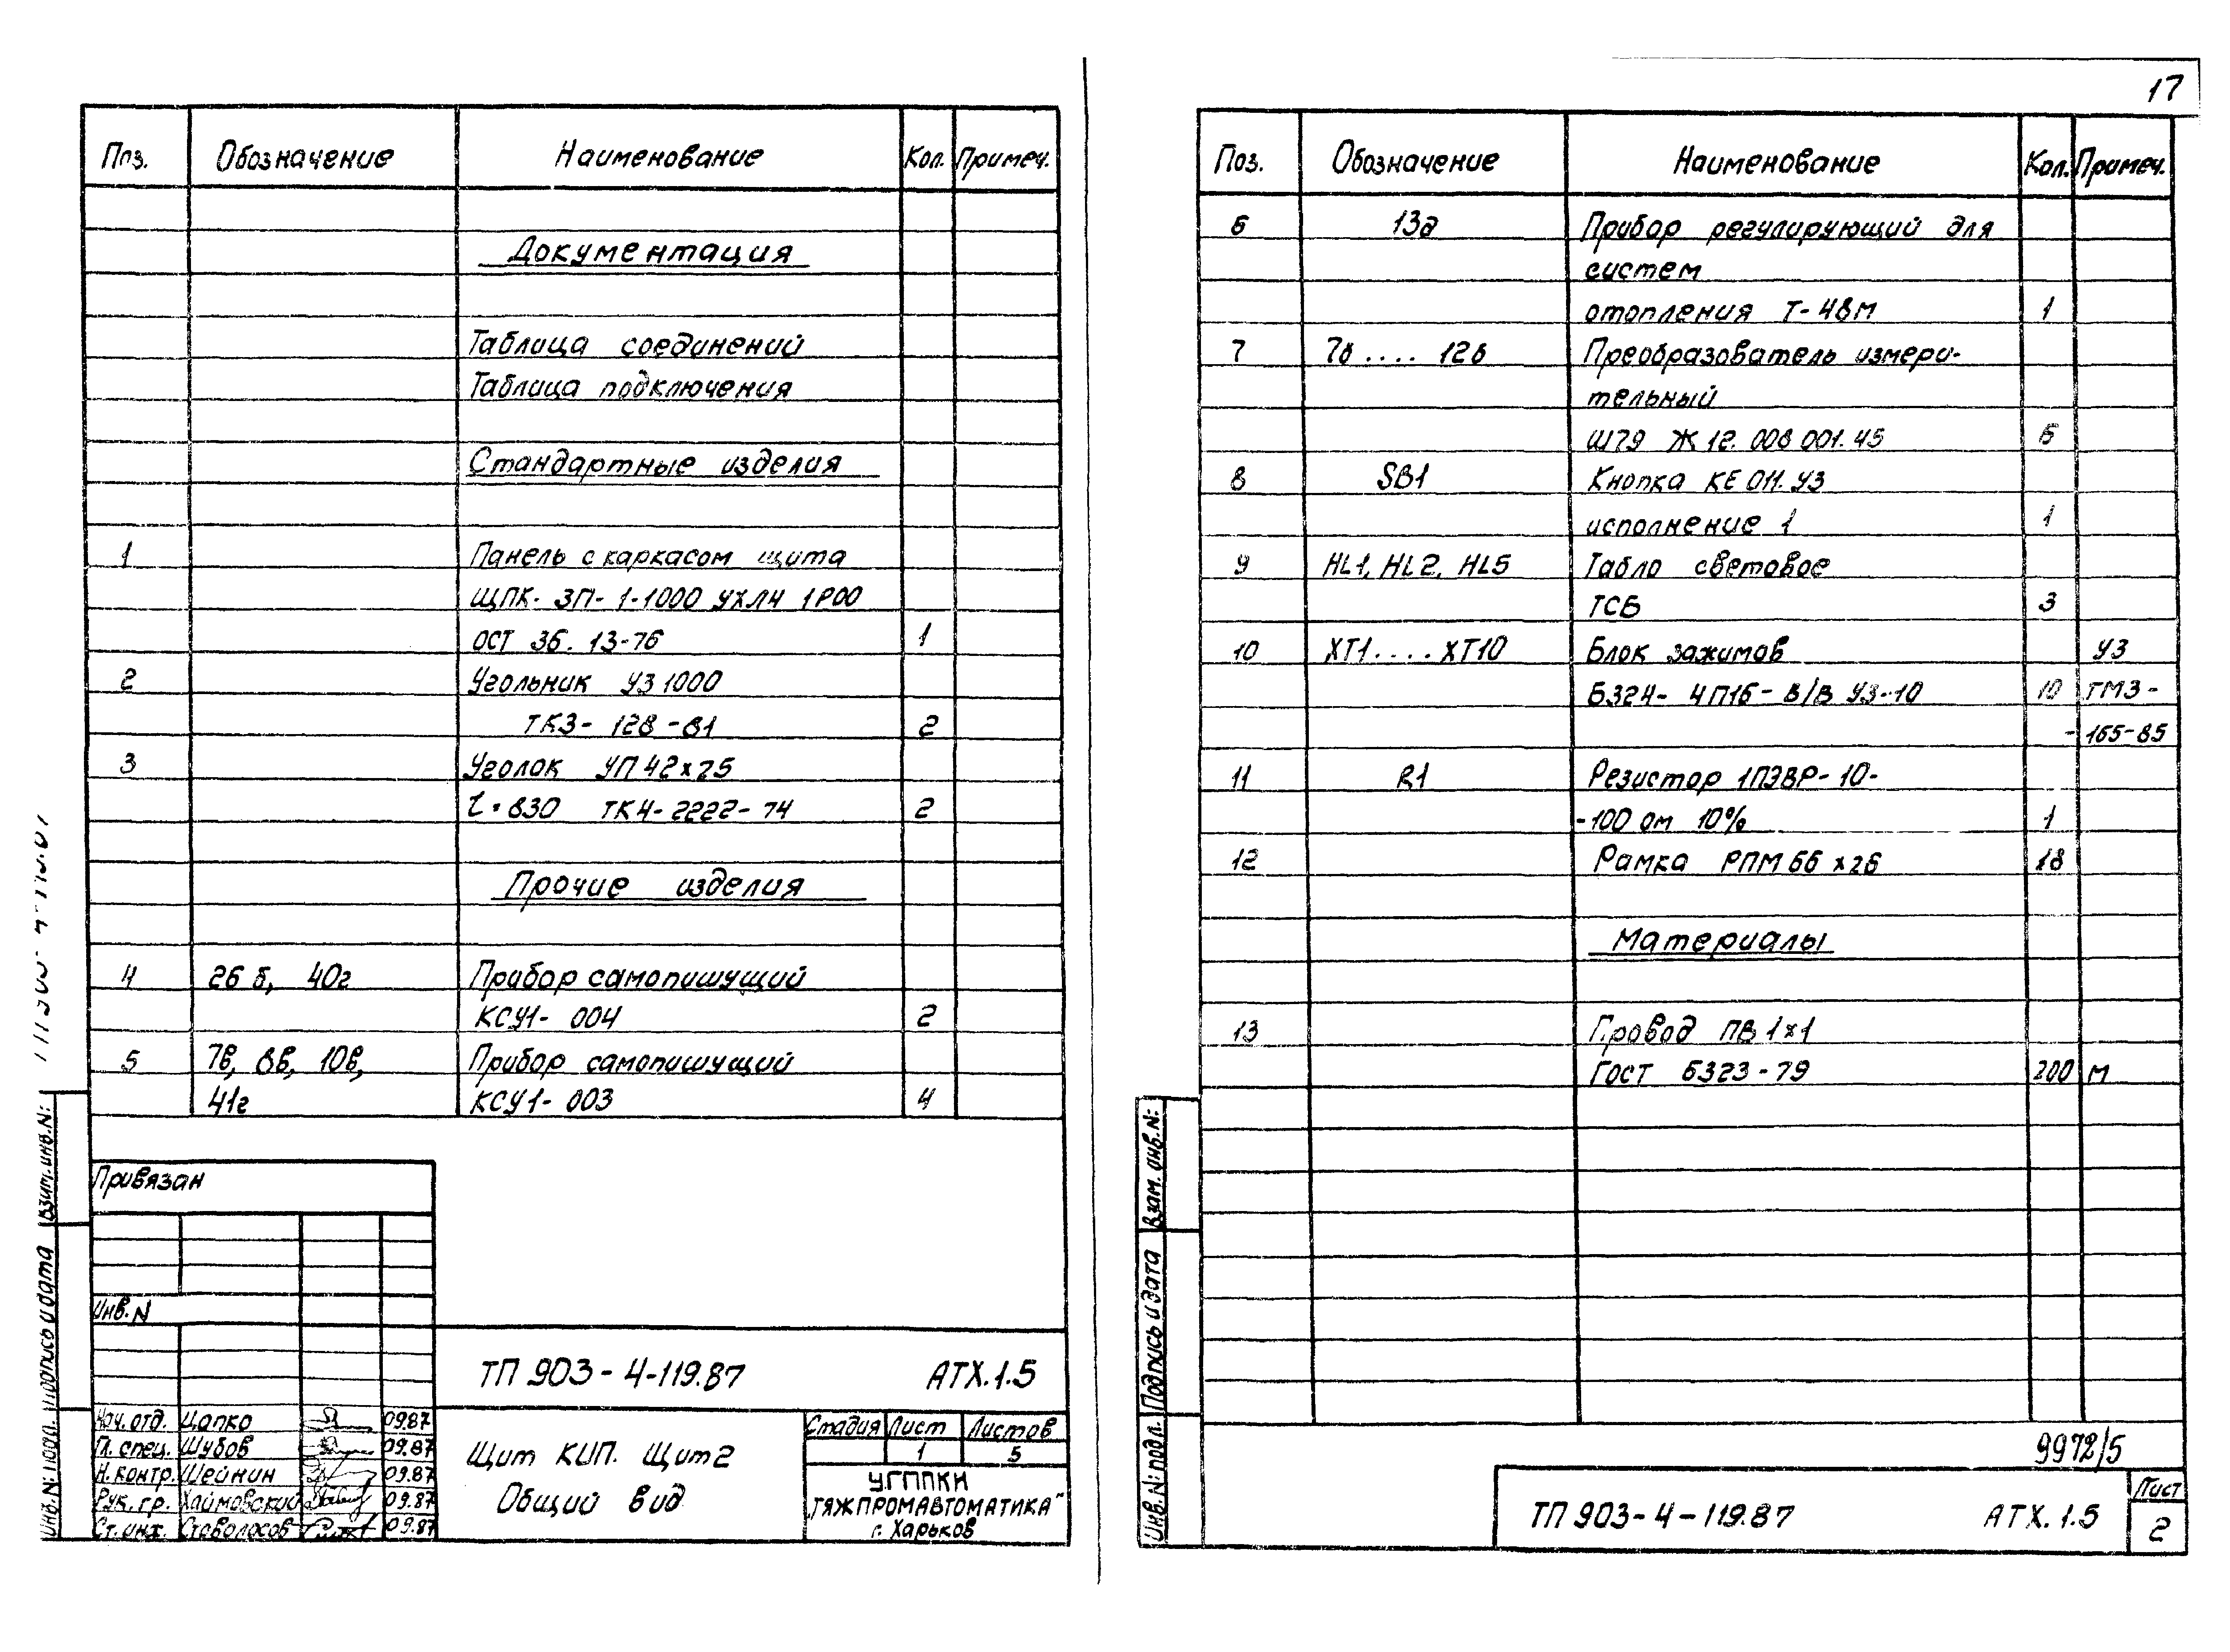 Поз. Обозначение Наименование Кол. Примеч.
Документация
Таблица соединений
Таблица подключения
Стандартные изделия
1 Панель с каркасом щита
ЩПК- ЗП- 1-1000 УХЛ4 1Р00
ОСТ 36. 13-76 1
2 Угольник УЗ 1000
ТК3- 128-81 2
3 Уголок УП 42х25
ℓ=830 ТК4-2222-74 2
Прочие изделия
4 26 б, 40г Прибор самопишущий
КСУ1- 004 2
5 7в, 8в, 10в, Прибор самопишущий
41г КСУ1- 003 4
Привязан
Инв. N
ТП 903-4-119.87 АТХ.1.5
Нач. отд. Цапко 09.87
Гл. спец. Шубов 09.87
Н. контр. Шейнин 09.87
Рук. гр. Хаймовский 09.87
Ст. инж. 09.87
Щит КИП. Щит 2
Общий вид
Стадия Лист Листов
1 5
УГППКИ
"ТЯЖПРОМАВТОМАТИКА"
г. Харьков
Инв. N: подл. Подпись и дата Взам. инв. N:
17
Поз. Обозначение Наименование Кол. Примеч.
6 13д Прибор регулирующий для
систем
отопления Т-48М 1
7 7б .... 12б Преобразователь измери-
тельный
Ш79 Ж 12. 008 001. 45 6
8 SB1 Кнопка КЕ 011. У3
исполнение 1 1
9 HL1, HL2, HL5 Табло световое
ТСБ 3
10 XT1 .... XT10 Блок зажимов У3
Б324- 4П16- В/В У3-10 10 ТМ3-
-165-85
11 R1 Резистор 1ПЭВР- 10-
-100 ом 10% 1
12 Рамка РПМ 66 х 26 18
Материалы
13 Провод ПВ 1х1
ГОСТ 6323-79 200 м
9972/5
ТП 903-4-119.87 АТХ. 1.5
Лист
2
Инв. N: подл. Подпись и дата Взам. инв. N: